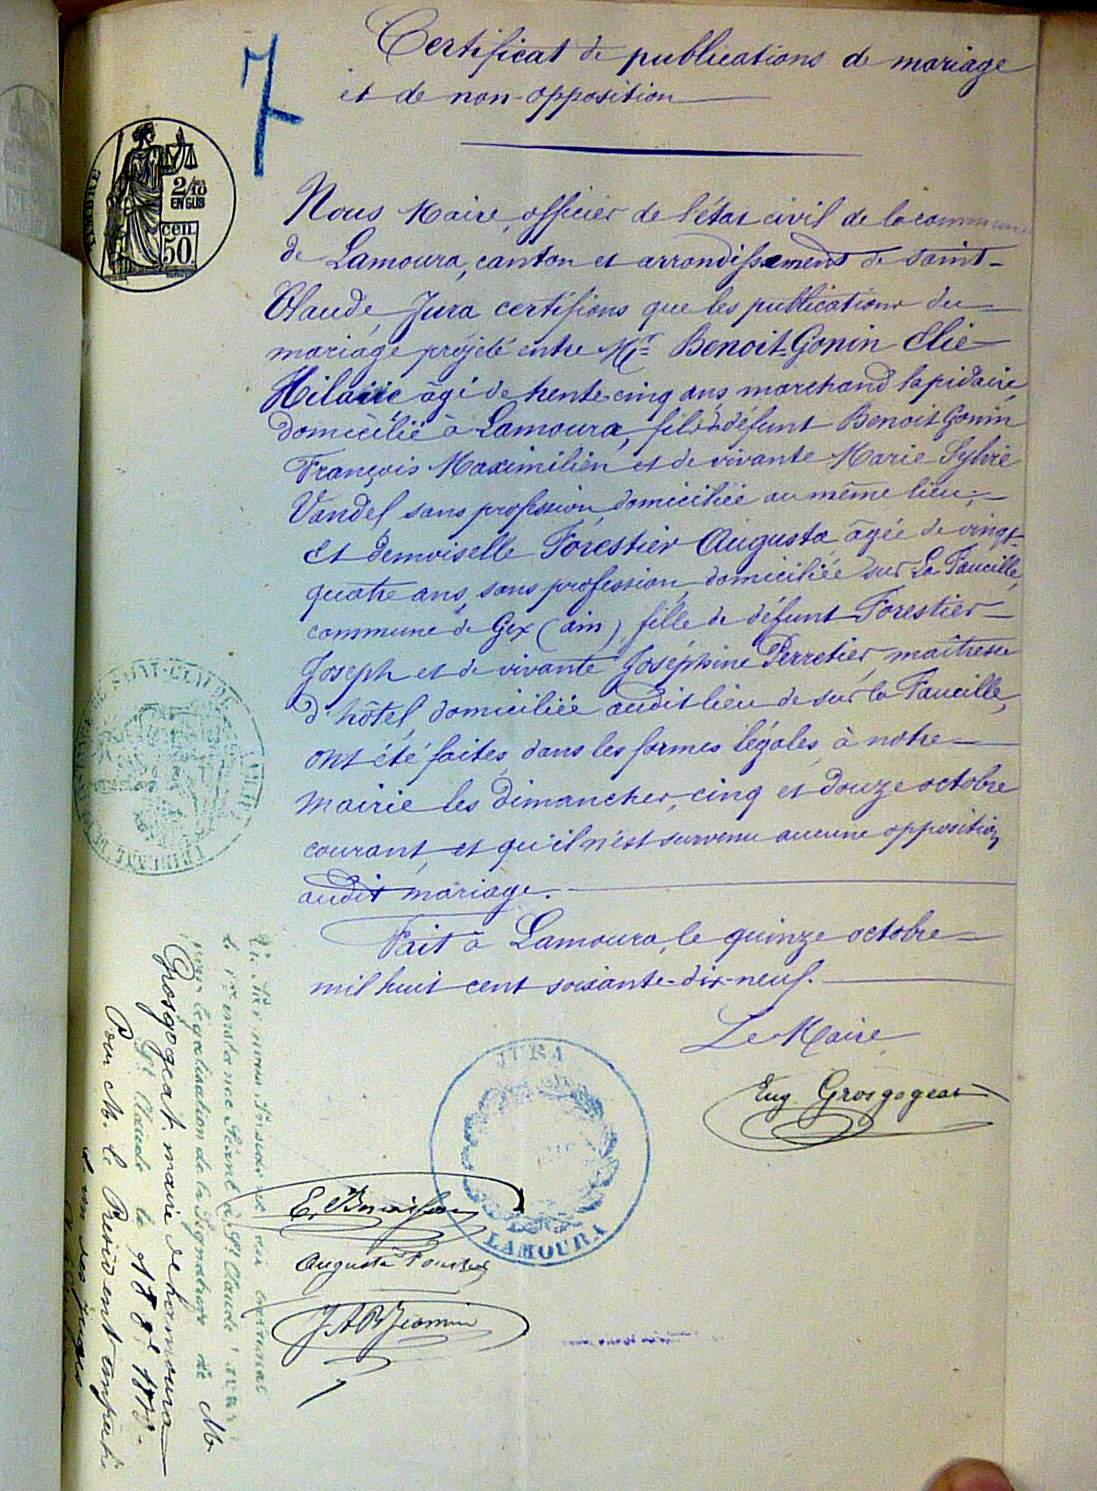 7
Certificat de publications de mariage
et de non-opposition
TIMBRE
2/10 EN SUS
cen. 50.
Nous Maire, officier de l'état civil de la commune
de Lamoura, canton et arrondissement de Saint-
Claude, Jura, certifions que les publications du
mariage projeté entre Mr Benoit-Gonin Elie
Hilaire âgé de trente-cinq ans marchand lapidaire,
domicilié à Lamoura, fils de défunt Benoit Gonin
François Maximilien et de vivante Marie Sylvie
Vandel, sans profession, domiciliée au même lieu;
Et demoiselle Forestier Augusta âgée de vingt-
quatre ans, sans profession, domiciliée sur La Faucille,
commune de Gex (ain), fille de défunt Forestier
Joseph et de vivante Joséphine Perretier, maîtresse
d'hôtel, domiciliée audit lieu de sur la Faucille,
ont été faites, dans les formes légales, à notre
mairie les dimanches, cinq et douze octobre
courant, et qu'il n'est survenu aucune opposition
audit mariage.
Fait à Lamoura, le quinze octobre
mil huit cent soixante-dix-neuf.
Le Maire
Eug Grosgogeat
JURA
LAMOURA
Augusta
pour légalisation de la Signature de M
Grosgogeat, maire de Lamoura
St Claude le
Pour M. le Président empêché
l'un des Juges